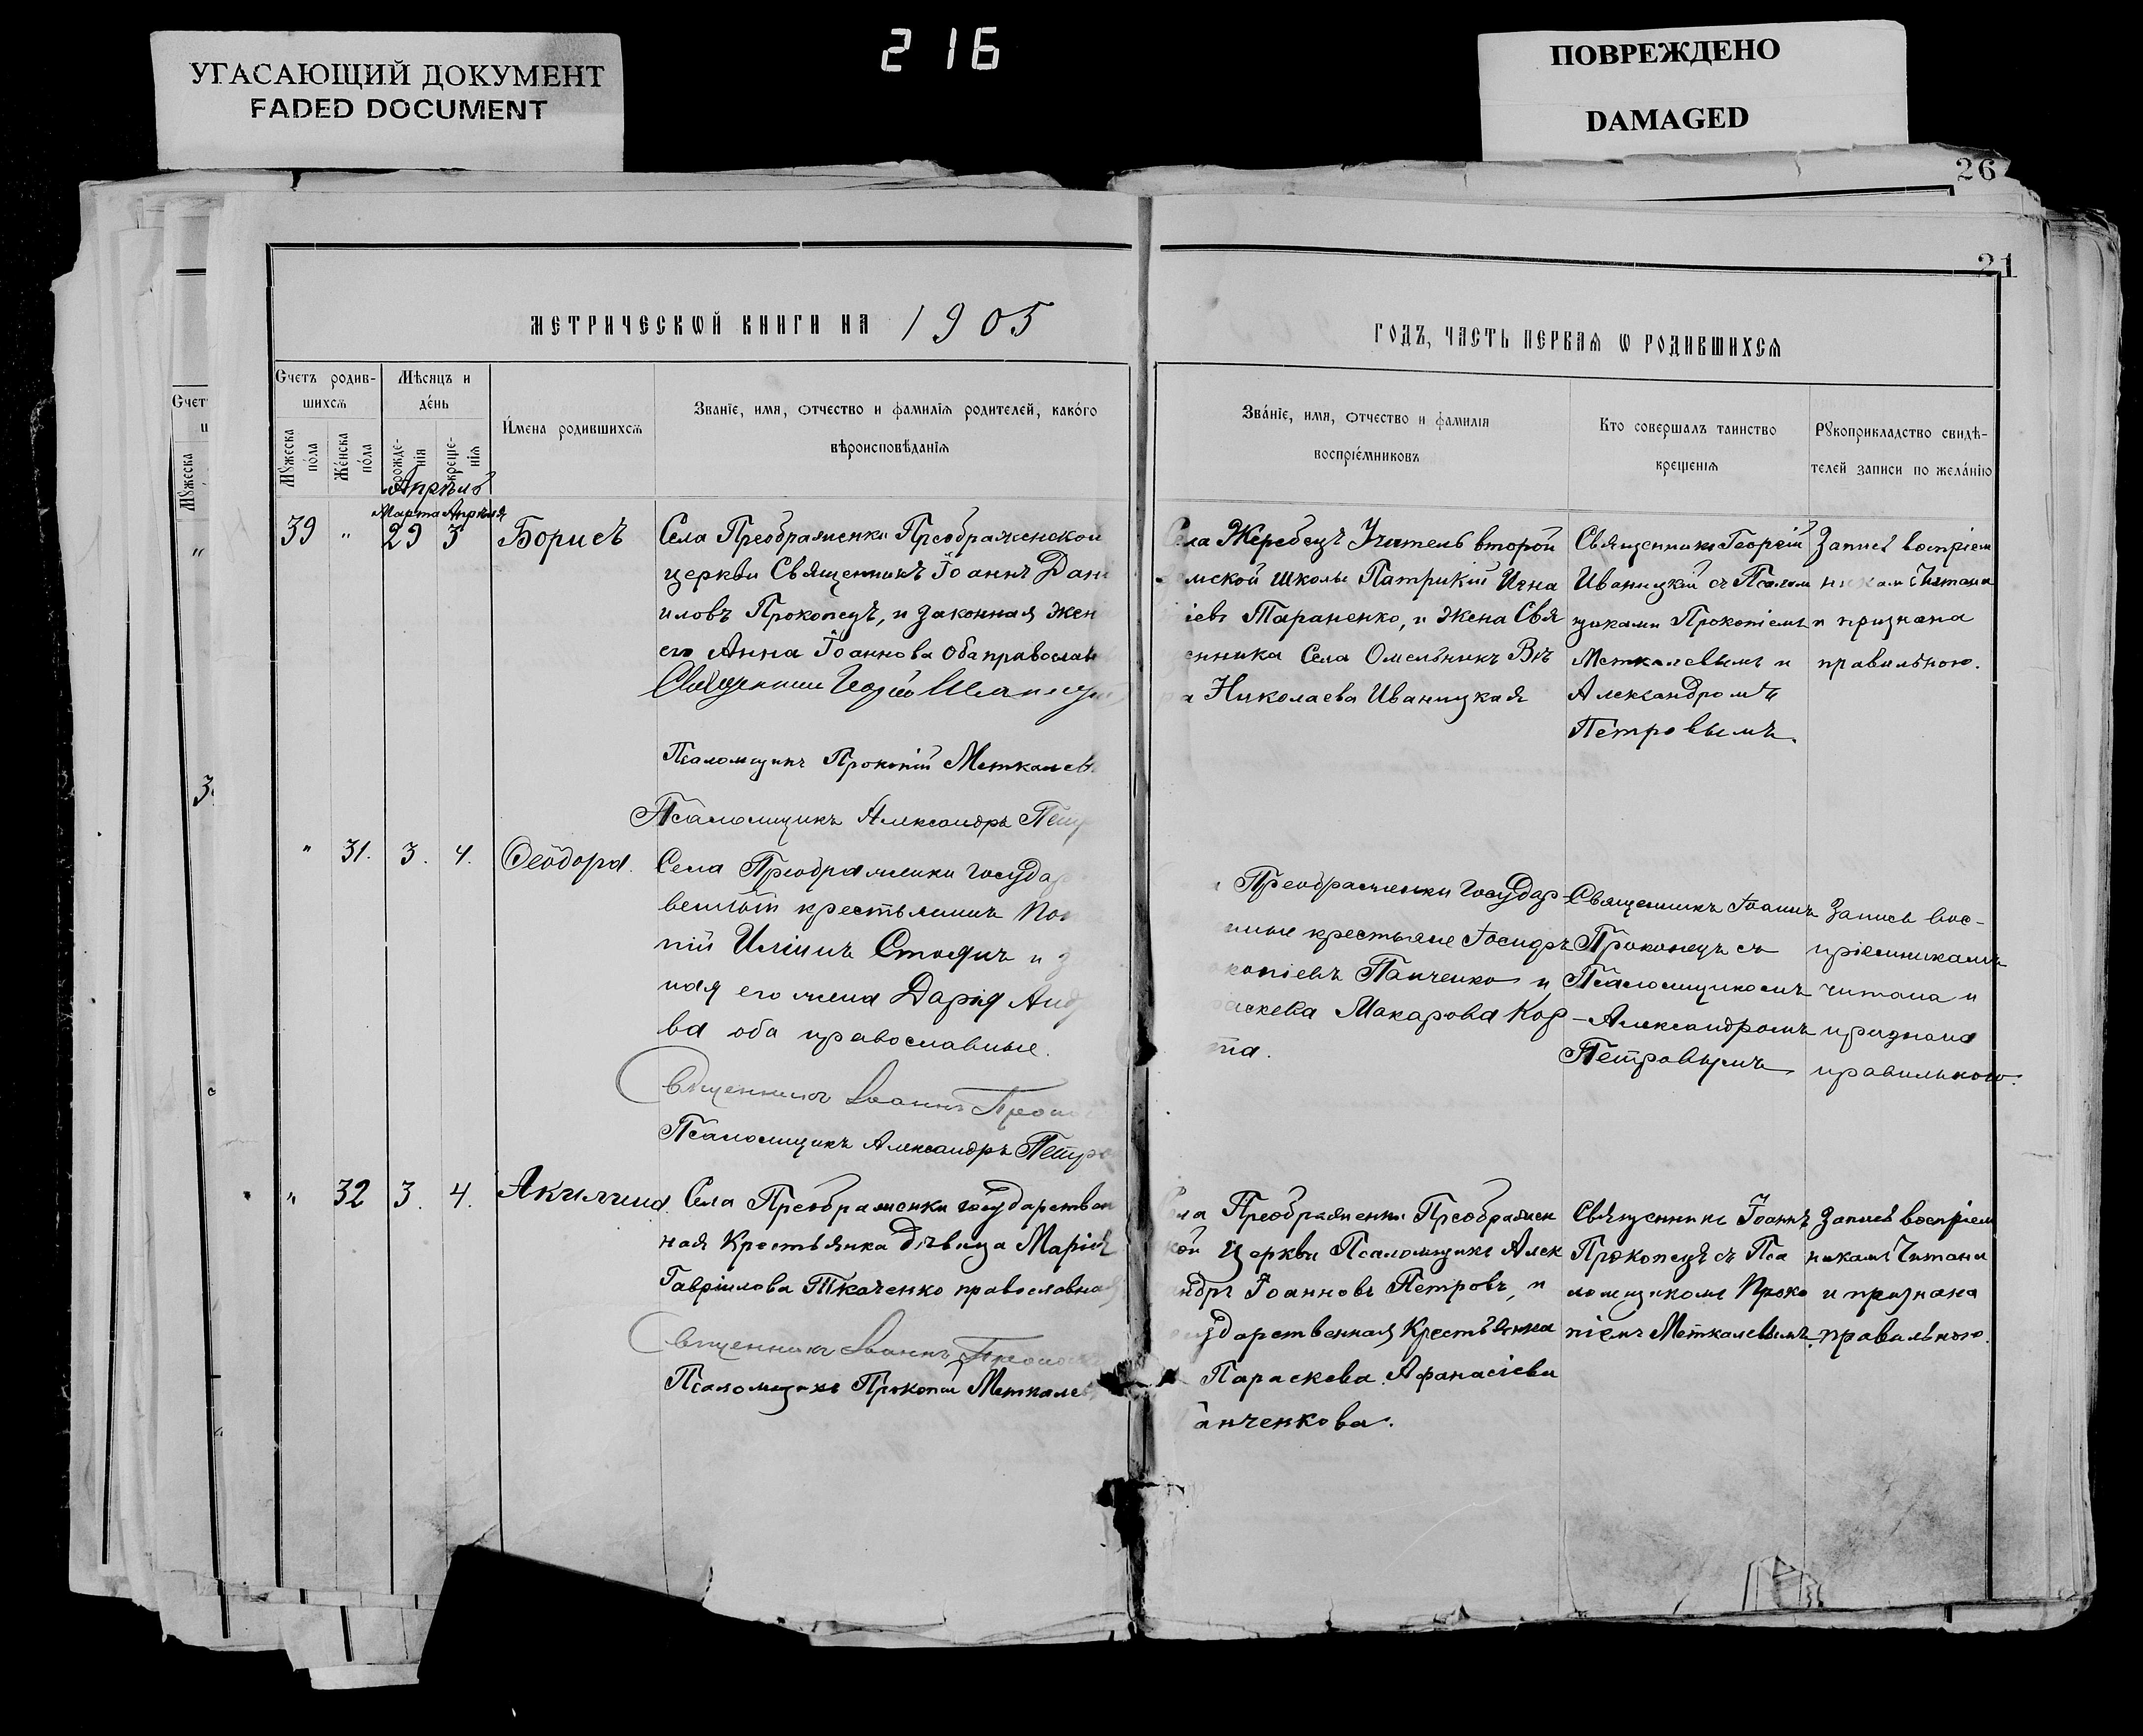 УГАСАЮЩИЙ ДОКУМЕНТ
FADED DOCUMENT
216
ПОВРЕЖДЕНО
DAMAGED
26
21
МЕТРИЧЕСКѠЙ КНИГИ НА 1905
ГОДЪ, ЧАСТЬ ПЕРВАѦ Ѡ РОДИВШИХСѦ
Счетъ родив-
шихсѧ
Мꙋжеска
по́ла
Же́нска
по́ла
Мѣсяцъ и
де́нь
рожде-
нїѧ
креще-
нїѧ
И́мена родившихсѧ
Званїе, имѧ, ѻтчество и фамилїѧ родителей, како́го
вѣроисповѣданїѧ
Зва́нїе, имѧ, ѻтчество и фамилїѧ
воспрїе́мниковъ
Кто совершалъ таинство
крещенїѧ
Рꙋкоприкладство свидѣ-
телей записи по жела́нїю
Счет
Мꙋжеска
Апрѣль
Марта Апрѣля
39 " 29 3 Борисъ
Села Преображенки Преображенской
церкви Священникъ Іоаннъ Дани
иловъ Прокопецъ, и законная жен
его Анна Іоаннова оба православ
Священникъ Георгій Иваницк
Псаломщикъ Прокопій Меткалев
Псаломщикъ Александръ Пет
Села Жеребецъ Учитель второй
мской школы Патрикій Игна
іевъ Тараненко, и жена Свя
енника Села Омельникъ Вѣ
а Николаева Иваницкая
Священникъ Георгій
Иваницкій съ Псалом
щиками Прокопіемъ
Меткалевымъ и
Александромъ
Петровымъ.
Запись воспріем
никам читана
и признана
правильною.
" 31. 3. 4. Ѳеодора.
Села Преображенки государ
венный крестьянинъ
пій Иліинъ Стогдич и з
ная его жена Дарія Анд
ва оба православные.
Священникъ Іоаннъ Прокоп
Псаломщикъ Александръ Петро
Преображенки Государ-
нные крестьяне Іосифъ
окопіевъ Панченко и
раскева Макарова Кор-
та.
Священникъ Іоаннъ
Прокопецъ съ
Псаломщикомъ
Александромъ
Петровымъ
Запись вос-
пріемникамъ
читана и
признана
правильною.
" 32 3. 4. Акилина
Села Преображенки государствен
ная Крестьянка дѣвица Марія
Гавріилова Ткаченко православная
Священникъ Іоаннъ Прокоп
Псаломщикъ Прокопій Меткалев
Села Преображенки Преображен
кой Церкви Псаломщикъ Алек
андръ Іоанновъ Петровъ, и
осударственная Крестьянка
Параскева Афанасіева
анченкова.
Священникъ Іоаннъ
Прокопецъ съ Пса
ломщикомъ Проко
піемъ Меткалевымъ.
Запись воспріем
никамъ Читана
и признана
правильною.